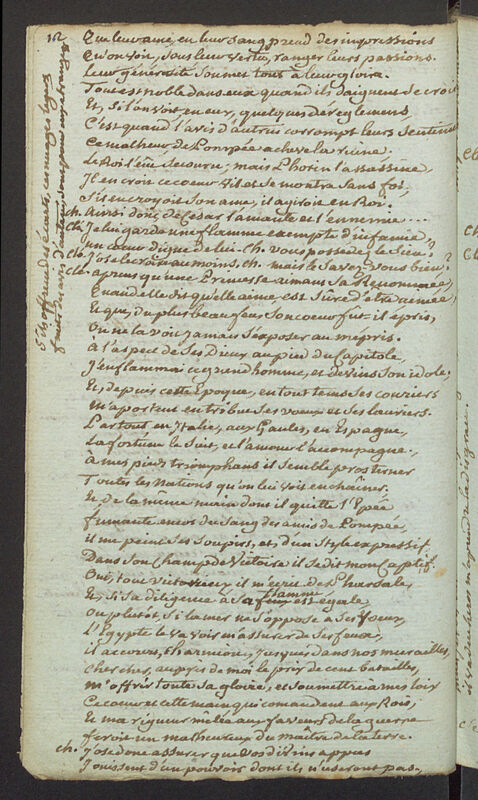 12
Que leur ame, en leur sang prend des impressions
Qu'on voit, sous leur vertu, ranger leurs passions.
Leur générosité soumet tout à leur gloire.
Tout est noble dans eux quand ils daignent se croire
Et, si l'on voit en eux, quelques déréglemens,
C'est quand l'avis d'autrui corrompt leurs sentimens
Ce malheur de Pompée acheve la ruine.
Le Roi l'eut secouru; mais Photin l'assassine,
Il en croit ce coeur vil et se montre sans foi,
S'il en croyoit son ame, il agiroit en Roi.
ch. Aussi donc de César l'amante et l'ennemie...
Cl. Je lui garde une flamme exempte d'infamie,
un coeur digne de lui. Ch. vous possedez le sien?
Clé. Je ose le croire au moins. ch. mais le savez-vous bien?
Clé. aprenez qu'une Princesse aimant sa Renommée,
Quand elle dit qu'elle aime, est sûre d'être aimée,
Et que, du plus beau feu son coeur fut-il épris,
On ne la voit jamais s'exposer au mépris.
à l'aspect de ses Dieux au pied du Capitole,
J'enflammai ce grand homme, et devins son idole;
Et, depuis cette Epoque, en tout tems ses couriers
m'aportent en tribut ses voeux et ses lauriers.
Partout en Italie, aux Gaules, en Espagne,
La fortune le suit, et l'amour l'accompagne.
à mes pieds triomphans il semble prosterner
Toutes les Nations qu'on lui voit enchaîner.
Et de la même main dont il quitte l'Epée
fumante encor du sang des amis de Pompée,
il me peint ses soupirs, et, d'un style expressif
Dans son champ de Victoire il se dit mon captif.
Oui, tout victorieux il m'écrit de Pharsale,
Et, si sa diligence à sa flamme est égale
Ou plutôt, si la mer ne s'oppose à ses voeux,
L'Egypte le va voir m'assurer de ses feux,
il accourt, Charmione, jusques dans nos murailles,
chercher, auprès de moi le prix de cent batailles,
m'offrir toute sa gloire, et soumettre à mes loix
Ce coeur et cette main qui comandent aux Rois,
Et ma rigueur mêlée aux faveurs de la guerre
feroit un malheureux du maître de la terre.
ch. J'ose donc assurer que vos divins appas
Jouissent d'un pouvoir dont ils n'useront pas,